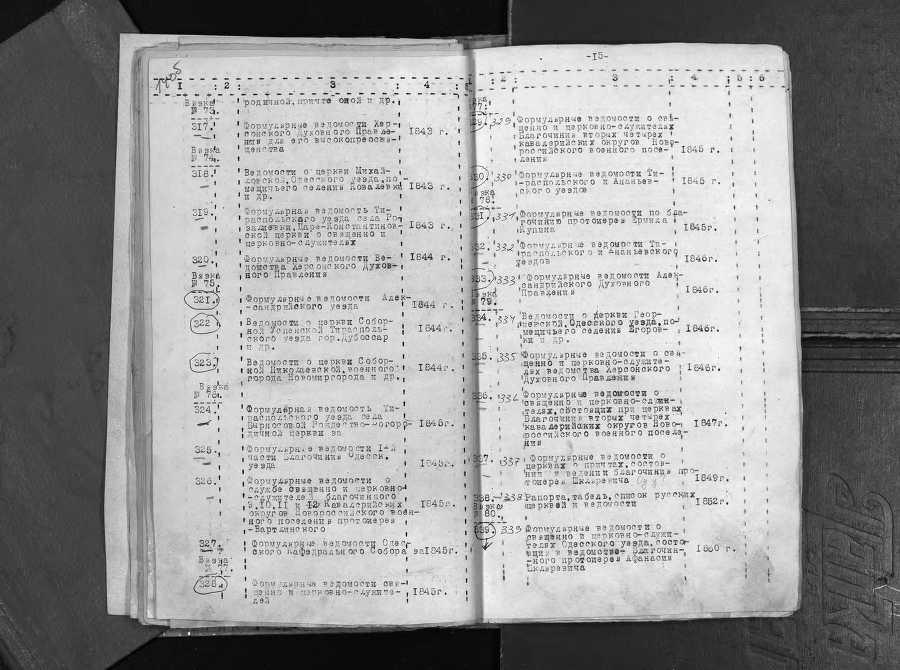 1 2 3 4
Вязка родичной, причте оной и др.
№ 73.
317. Формулярные ведомости Хер-
сонского Духовного Правле-
ния для его высокопреосвя-
щенства 1843 г.
Вязка
№ 74.
318. Ведомости о церкви Михай-
ловской, Одесского уезда, по-
мещичьего селения Ковалевки
и др. 1843 г.
319. Формулярная ведомость Ти-
распольского уезда села Ро
залиевки, Царе-Константинов-
ской церкви о священно и
церковно-служителях 1843 г.
320. Формулярные ведомости Ве-
домства Херсонского Духов-
ного Правления 1844 г.
Вязка
№ 75.
321. Формулярные ведомости Алек-
-сандрийского уезда 1844 г.
322 Ведомости о церкви Собор-
ной Успенской Тирасполь-
ского уезда гор. Дубоссар
и др. 1844г.
323. Ведомости о церкви Собор-
ной Николаевской, военного
города Новомиргорода и др. 1844г.
Вязка
№ 76.
324. Формулярная ведомость Ти-
распольского уезда села
Рождество-Богоро
дичной церкви за 1845г.
325. Формулярные ведомости 1-й
части Благочиния Одесск.
уезда 1845г.
326. Формулярные ведомости о
службе священно и церковно-
-служителей благочинного
9, 10, 11 и 12 Кавалерийских
округов Новороссийского воен-
ного поселения протоиерея
-Вартминского 1845г.
327. Формулярные ведомости Одес-
ского Кафедрального Собора за 1845г.
Вязка
328. Формулярные ведомости свя-
щенно и церковно-служите-
лей 1845г.
-15-
3 4 5 6
329 Формулярные ведомости о свя-
щенно и церковно-служителях
Благочиния вторых четырех
кавалерийских округов Ново-
российского военного посе-
ления 1845 г.
330 Формулярные ведомости Ти-
-распольского и Ананьев-
ского уездов 1845 г.
78.
331 Формулярные ведомости по бла-
гочинию протоиерея Ермила
Кунина 1845г.
332. 332 Формулярные ведомости Ти-
распольского и Ананьевского
уездов 1846г.
333. 333 Формулярные ведомости Алек-
сандрийского Духовного
Правления 1846г.
79.
334. 334 Ведомости о церкви Геор-
гиевской, Одесского уезда, по-
мещичьего селения Егоров-
ки и др. 1846г.
335. 335 Формулярные ведомости о свя-
щенно и церковно-служите-
лях ведомства Херсонского
Духовного Правления 1846г.
336. 336 Формулярные ведомости о
священно и церковно-служи-
телях, состоящих при церквах
Благочиния вторых четырех
кавалерийских округов Ново-
российского военного поселе-
ния 1847г.
337. 337 Формулярные ведомости о
церквах о причтах, состоя-
ния в ведении благочиния про-
тоиерея Шкляревича 1849г.
338. 338 Рапорта, табель, список русских
церквей и ведомости 1852г.
Вязка
80.
339. 339 Формулярные ведомости о
священно и церковно-служи-
телях Одесского уезда, состо-
ящих в ведомстве Благочин-
-ного протоиерея Афанасия
Шкляревича 1850 г.